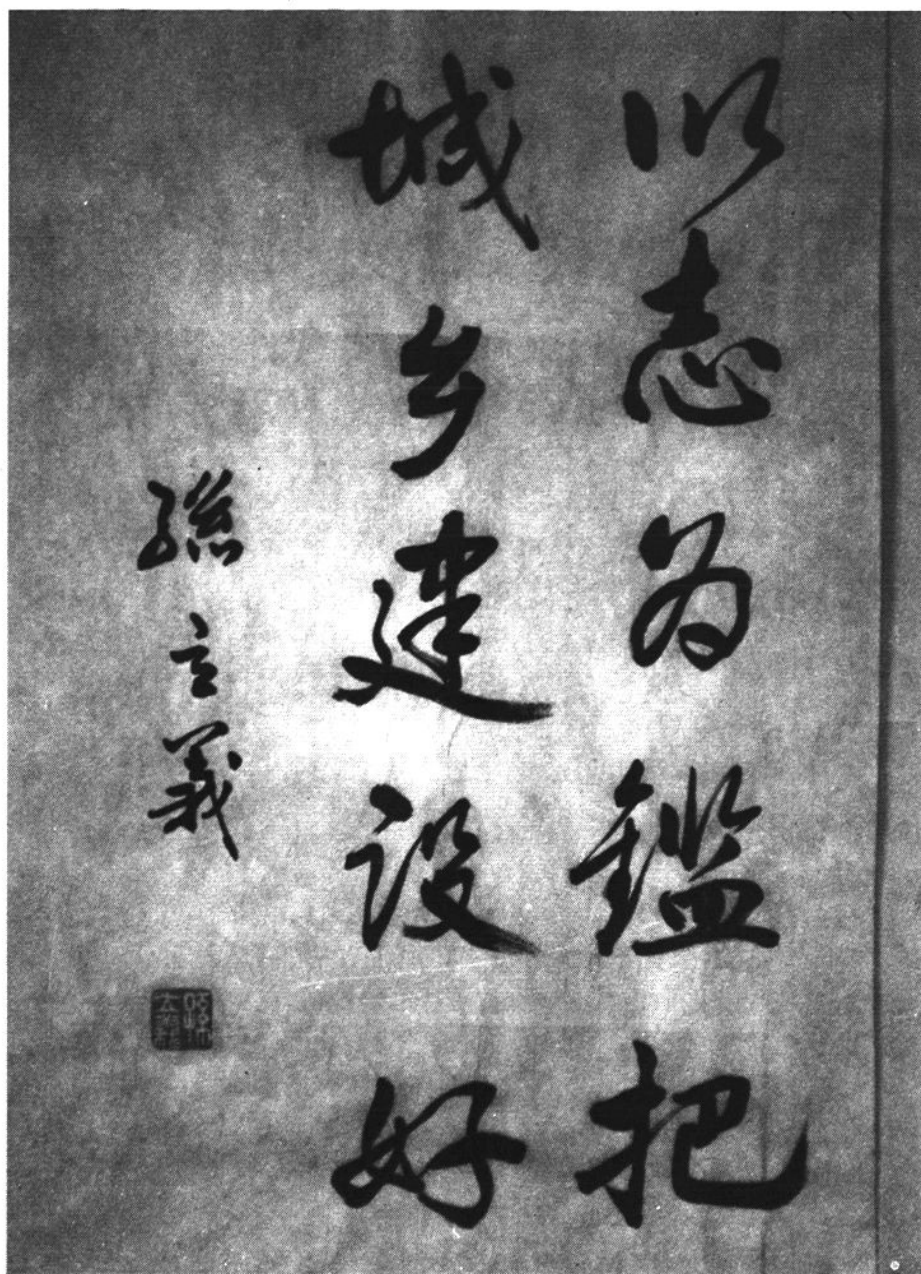 以志为鉴把
城乡建设好
孫立義